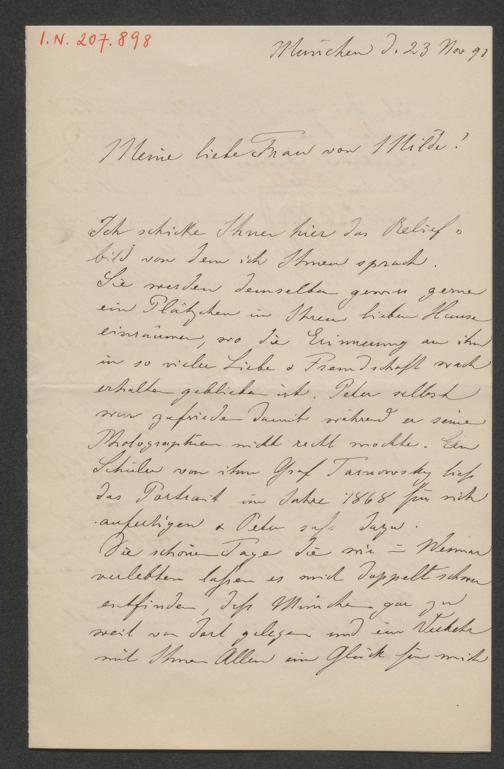 I.N. 207.898
München d. 23 Nov 91
Meine liebe Frau von Milde!
Ich schicke Ihnen hier das Relief-
bild von dem ich Ihnen sprach.
Sie werden demselben gewiss gerne
ein Plätzchen in Ihrem lieben Hause
einräumen, wo die Erinnerung an ihn
in so vieler Liebe & Freundschaft wach
erhalten geblieben ist. Peter selbst
war zufrieden damit während er seine
Photographien nicht recht mochte. Ein
Schüler von ihm Graf Tarnowsky ließ
das Portrait im Jahre 1868 für sich
anfertigen & Peter saß dazu.
Die schönen Tage die wir in Weimar
verlebten laßen es mich doppelt schwer
entfinden, daß München gar zu
weit von dort gelegen und ein Verkehr
mit Ihnen Allen ein Glück für mich